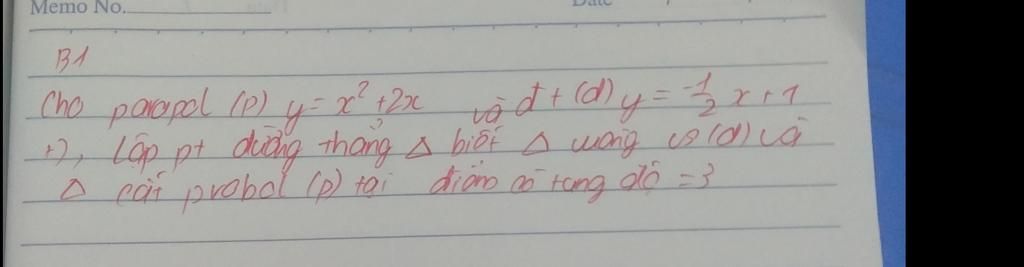 Memo No.
Date
B1
Cho parapol (P) y = x² + 2x và đt (d) y = -1/2 x + 1
+), Lập pt đường thẳng Δ biết Δ vuông vs (d) và
Δ cắt probol (P) tại điểm có tung độ = 3